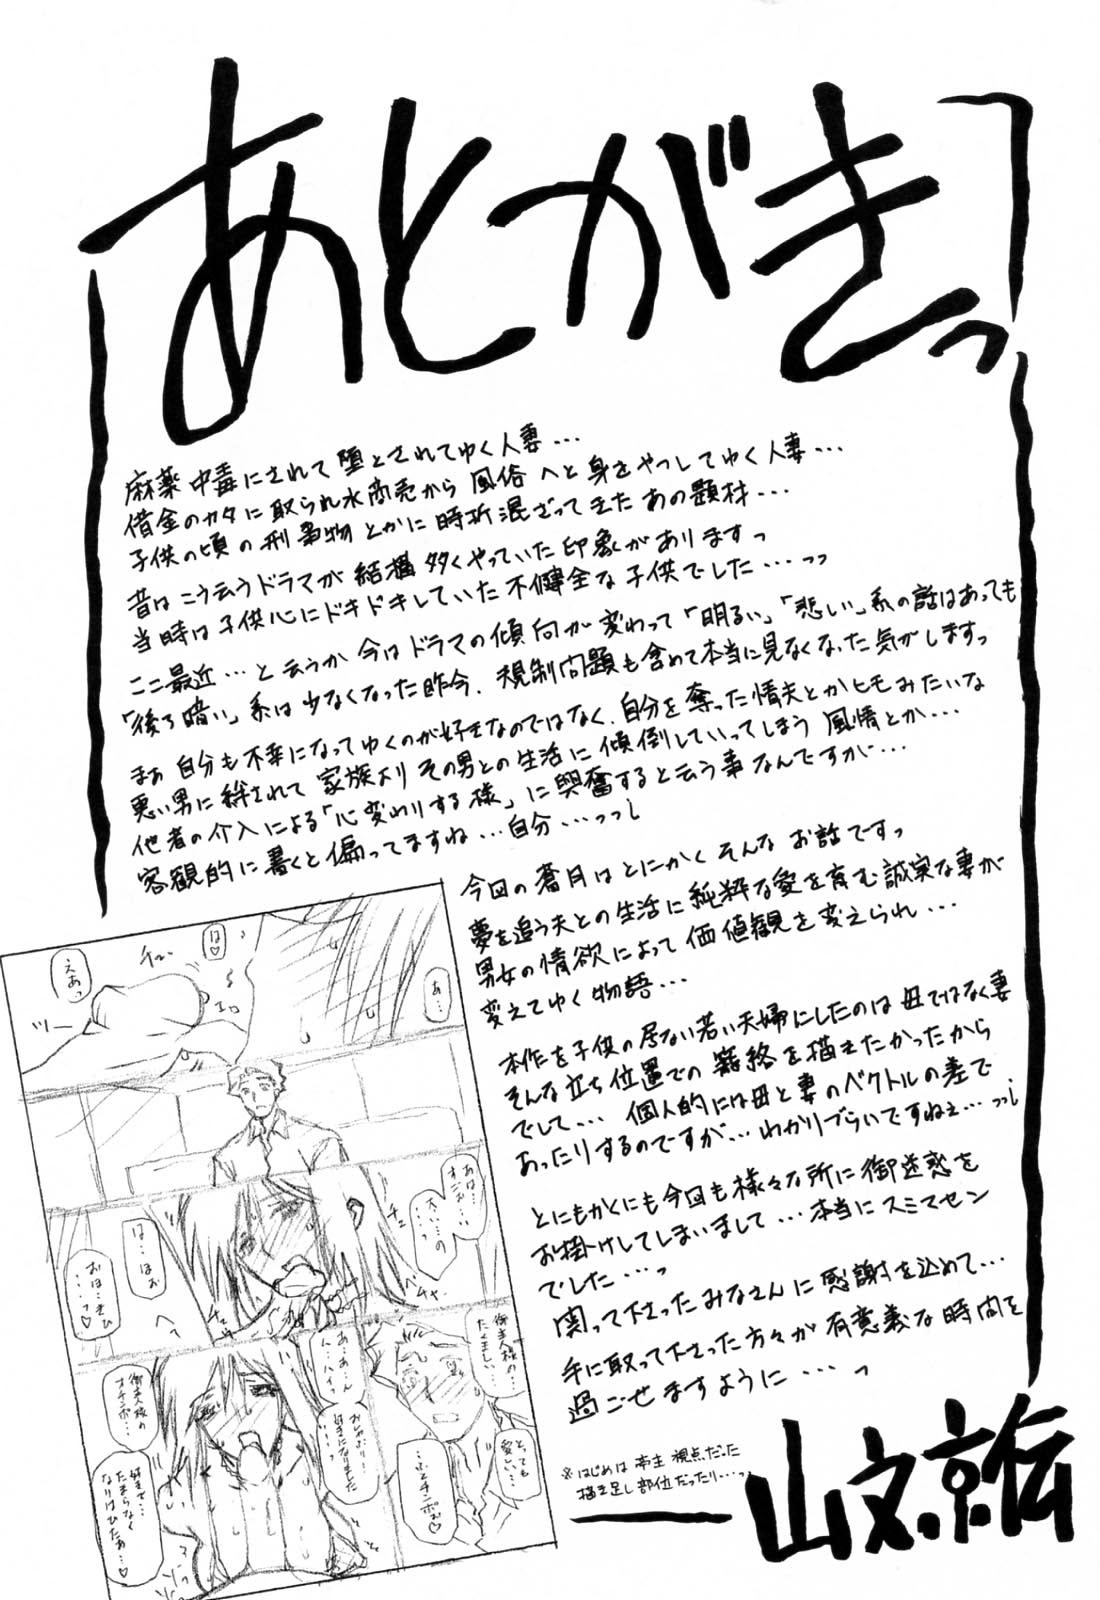 あとがきっ
麻薬中毒にされて堕とされてゆく人妻…
借金のカタに取られ水商売から風俗へと身をやつしてゆく人妻…
子供の頃の刑事物とかに時折混ざってきたあの題材…
昔はこう云うドラマが結構多くやっていた印象がありますっ
当時は子供心にドキドキしていた不健全な子供でした…っっ
ここ最近…と云うか今はドラマの傾向が変わって「明るい」「悲しい」系の話はあっても
「後ろ暗い」系は少なくなった昨今、規制問題も含めて本当に見なくなった気がしますっ
まぁ自分も不幸になってゆくのが好きなのではなく、自分を奪った情夫とかヒモみたいな
悪い男に絆されて家族よりその男との生活に傾倒していってしまう風情とか…
他者の介入による「心変わりする様」に興奮すると云う事なんですが…
客観的に書くと偏ってますね…自分…っっ
今回の蒼月はとにかくそんなお話ですっ
夢を追う夫との生活に純粋な愛を育む誠実な妻が
男女の情欲によって価値観を変えられ…
変えてゆく物語…
本作を子供の居ない若い夫婦にしたのは母ではなく妻
そんな立ち位置での籠絡を描えたかったから
でして… 個人的には母と妻のベクトルの差で
あったりするのですが…わかりづらいですねぇ…っっ
とにもかくにも今回も様々な所に御迷惑を
お掛けしてしまいまして…本当にスミマセン
でした…っ
関って下さったみなさんに感謝を込めて…
手に取って下さった方々が有意義な時間を
過ごせますように…っ
※はじめは亭主視点だった
描き足し部位だったり…っ
山文京伝
えあっ
チュ
は♡
ツー
エロ
あ…
あは…
すごお…
大い…の
…
チュ
は…はお
おは…きひ
…っ♡
へぇ
チュ
チャ
御主人様の
たくましい…
あ…あ…ん
ん…ハイっ
…
おしゃぶり…
好きになりました
…
とっても
愛しい…
…
…ふとチンポぉ♡
御主人様の
オチンポ…
好きで…
たまらなく
なりけひたぁ…♡